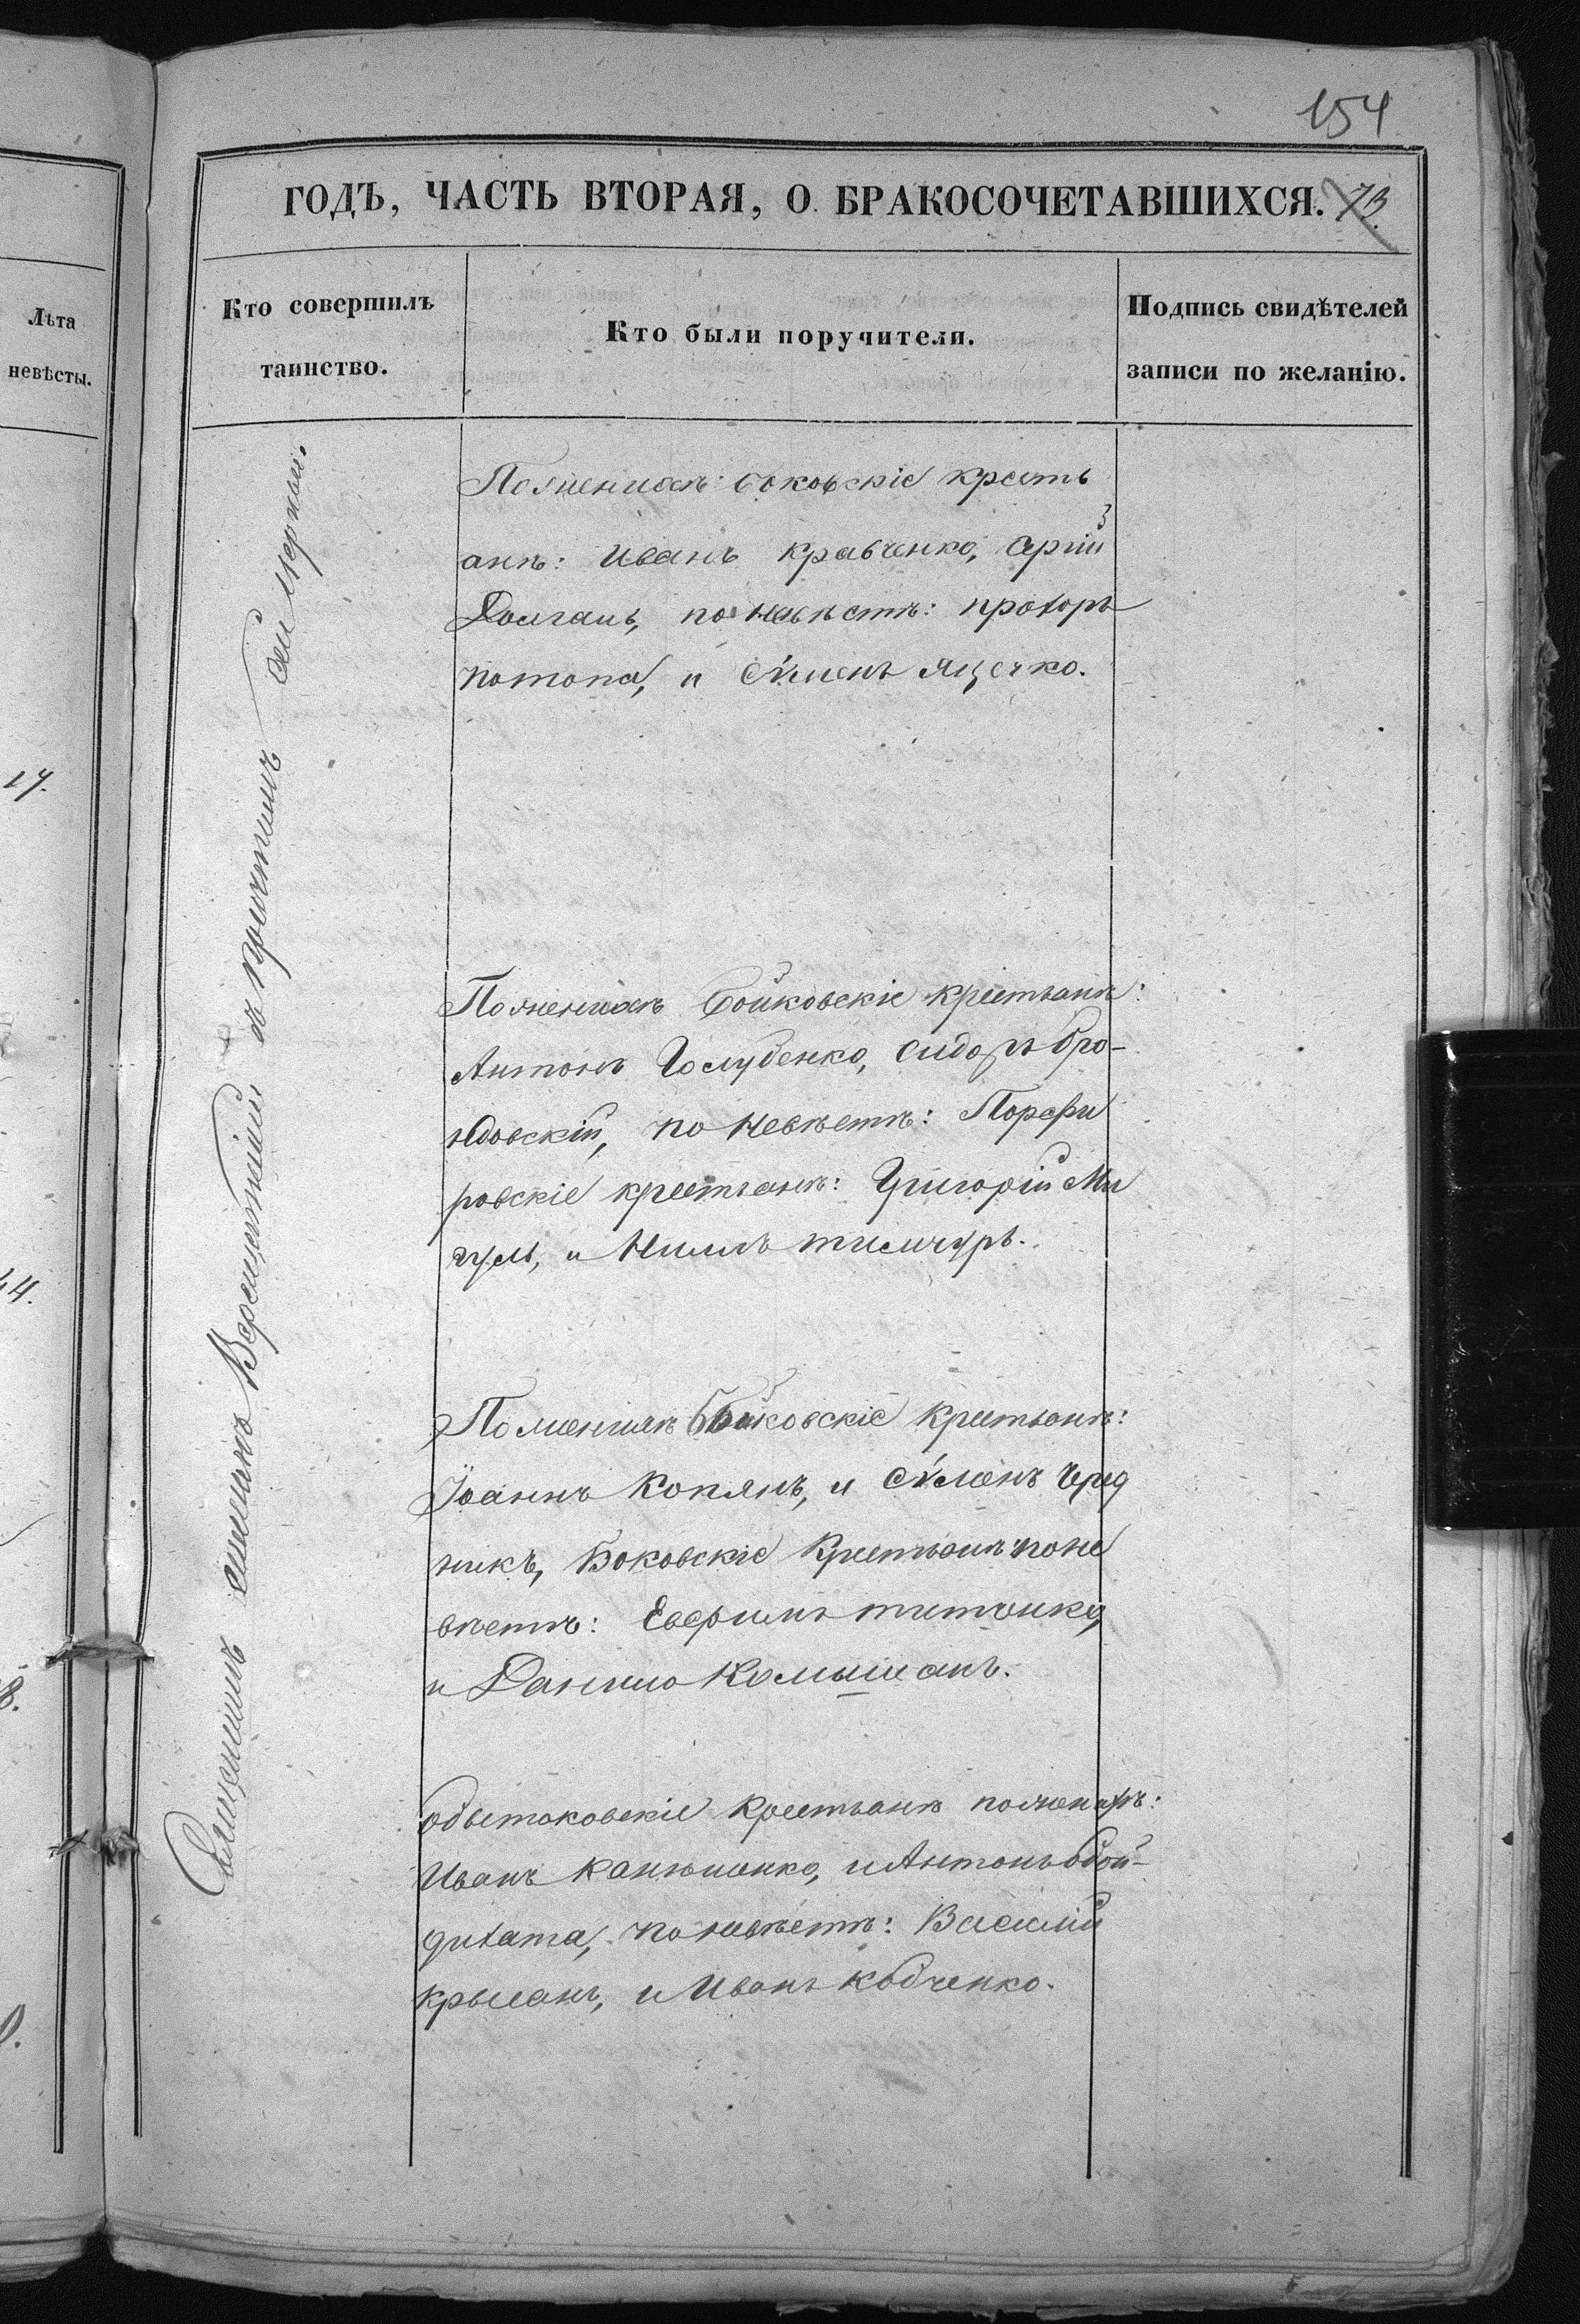 154
ГОДЪ, ЧАСТЬ ВТОРАЯ, О БРАКОСОЧЕТАВШИХСЯ. 73
Лѣта
невѣсты.
Кто совершилъ
таинство.
Кто были поручители.
Подпись свидѣтелей
записи по желанію.
17.
44.
8.
0.
Священникъ Симеонъ Верещацкій съ причтомъ
По женихѣ: боковскіе кресть
анѣ: Иванъ Кравченко,
Долгаль, по невѣстѣ: Прохоръ
Потопа, и Сѵмеонъ Яцечко.
По женихѣ Бойковскіе крестьянѣ:
Антонъ Голубенко, Сидоръ Бро-
ндовскій, по невѣстѣ: Порфи
ровскіе крестьянѣ: Григорій Ми
гуль, и
По женихѣ Бойковскіе крестьянѣ:
Іоаннъ Копянъ, и Сѵмеонъ Чред
никъ, Боковскіе крестьянѣ по не
вѣстѣ: Евфимъ Титенко,
и Данило Комышанъ.
крестьянѣ по женихѣ:
Иванъ Канюшенко, и Антонъ Обой-
дихата, по невѣстѣ: Василій
Крысанъ, и Иванъ Кобченко.